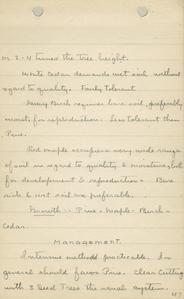 or 2-4 times the tree height.
White Cedar demands wet soil without
regard to quality. Fairly Tolerant.
Birch requires bare soil, preferably
moist, for reproduction. Less tolerant than
Pine.
Red maple occupies a very wide range
of soil in regard to quality & moisture, but
for development & reproduction - Bare
rich & wet soil are preferable.
Growth :- Pine - Maple - Birch -
Cedar.
Management.
Intensive methods practicable. In
general should favor Pine. Clear Cutting
with 3 Seed Trees the usual system.